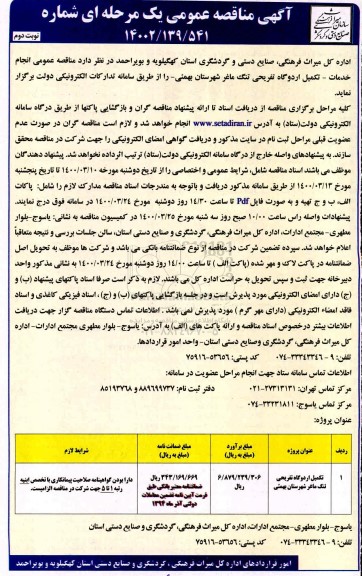 آگهی مناقصه عمومی یک مرحله ای شماره
۱۴۰۲/۱۳۹/۵۴۱
نوبت دوم
اداره کل میراث فرهنگی، صنایع دستی و گردشگری استان کهگیلویه و بویراحمد در نظر دارد مناقصه عمومی انجام
خدمات - تکمیل اردوگاه تفریحی تنگ ماغر شهرستان بهمئی- را از طریق سامانه تدارکات الکترونیکی دولت برگزار
نماید.
کلیه مراحل برگزاری مناقصه از دریافت اسناد تا ارائه پیشنهاد مناقصه گران و بازگشایی پاکتها از طریق درگاه سامانه
الکترونیکی دولت(ستاد) به آدرس www.setadiran.ir انجام خواهد شد و لازم است مناقصه گران در صورت عدم
عضویت قبلی مراحل ثبت نام در سایت مذکور و دریافت گواهی امضای الکترونیکی را جهت شرکت در مناقصه محقق
سازند. به پیشنهادهای واصله خارج از درگاه سامانه الکترونیکی دولت(ستاد) ترتیب اثر داده نخواهد شد. پیشنهاد دهندگان
موظف می باشند اسناد مناقصه شامل، شرایط عمومی و اختصاصی را از تاریخ دوشنبه مورخه ۱۴۰۰/۰۳/۱۰ تا تاریخ پنجشنبه
مورخ ۱۴۰۰/۰۳/۱۳ از طریق سامانه مذکور دریافت و باتوجه به مندرجات اسناد مناقصه مدارک لازم را شامل: پاکات
الف، ب و ج تهیه و به صورت فایل Pdf تا ساعت ۱۴/۳۰ روز دوشنبه مورخ ۱۴۰۰/۰۳/۲۴ در سامانه فوق درج نمایند.
پیشنهادات واصله راس ساعت ۱۰/۰۰ صبح روز سه شنبه مورخ ۱۴۰۰/۰۳/۲۵ در کمیسیون مناقصه به نشانی: یاسوج-بلوار
مطهری- مجتمع ادارات، اداره کل میراث فرهنگی، گردشگری و صنایع دستی استان، سالن جلسات بررسی و نتیجه متعاقباً
اعلام خواهد شد. سپرده تضمین شرکت در مناقصه از نوع ضمانتنامه بانکی می باشد و شرکت ها موظف به تحویل اصل
ضمانتنامه در پاکت لاک و مهر شده (پاکت الف) تا ساعت ۱۴/۰۰ روز دوشنبه مورخ ۱۴۰۰/۰۳/۲۴ به نشانی مذکور واحد
دبیرخانه جهت ثبت و سپس تحویل به حراست اداره کل می باشند. لازم به ذکر است صرفا اسناد پاکتهای پیشنهاد (ب) و
(ج) دارای امضای الکترونیکی مورد پذیرش است و در جلسه بازگشایی پاکتهای (ب) و (ج)، اسناد فیزیکی کاغذی و اسناد
فاقد امضاء الکترونیکی (دارای مهر گرم) مورد پذیرش نمی باشد. اطلاعات تماس دستگاه مناقصه گزار جهت دریافت
اطلاعات بیشتر درخصوص اسناد مناقصه و ارائه پاکت های (الف) به آدرس: یاسوج- بلوار مطهری مجتمع ادارات- اداره
کل میراث فرهنگی، گردشگری وصنایع دستی استان-واحد امور قراردادها.
تلفن: ۹ - ۳۳۳۴۳۳۴۶-۰۷۴ کد پستی: ۵۳۶۵۶-۷۵۹۱۶
اطلاعات تماس سامانه ستاد جهت انجام مراحل عضویت در سامانه:
مرکز تماس تهران: ۲۷۳۱۳۱۳۱-۰۲۱ دفتر ثبت نام: ۸۸۹۶۹۷۳۷ و ۸۵۱۹۳۷۶۸
مرکز تماس یاسوج: ۳۳۲۳۱۸۱۱-۰۷۴
عنوان پروژه:
ردیف عنوان پروژه مبلغ برآورد (مبلغ به ریال) مبلغ ضمانت نامه (مبلغ به ریال) شرایط لازم
۱ تکمیل اردوگاه تفریحی تنگ ماغر شهرستان بهمئی ۶/۸۷۹/۲۳۹/۳۰۶ ریال ۳۴۳/۱۶۹/۶۶۹ ریال ضمانتنامه معتبر بانکی طبق فرمت آیین نامه تضمین معاملات دولتی آذر ماه ۱۳۹۴ دارا بودن گواهینامه صلاحیت پیمانکاری با تخصص ابنیه رتبه ۱ تا ۵ جهت شرکت در مناقصه الزامیست.
یاسوج- بلوار مطهری- مجتمع ادارات، اداره کل میراث فرهنگی، گردشگری و صنایع دستی استان
تلفن: ۹ - ۳۳۳۴۳۳۴۶-۰۷۴ کد پستی: ۵۳۶۵۶-۷۵۹۱۶
امور قراردادهای اداره کل میراث فرهنگی، گردشگری و صنایع دستی استان کهگیلویه و بویراحمد